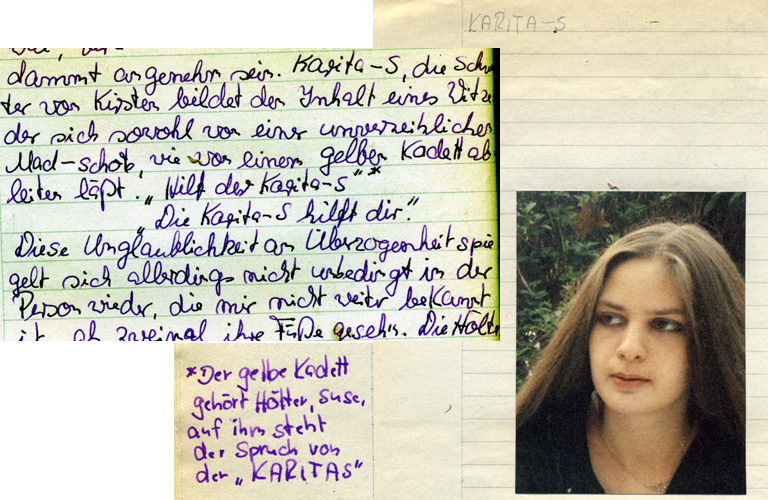 KARITA-S
dammt angenehm sein. Karita-S, die Schwe
ter von Kirsten bildet den Inhalt eines Witze
der sich sowohl von einer unverzeihlichen
Mad-schob, wie von einem gelben Kadett ab
leiten läßt. „Hilf der Karita-S"*
„Die Karita-S hilft dir."
Diese Unglaublichkeit an Überzogenheit spie
gelt sich allerdings nicht unbedingt in der
Person wieder, die mir nicht weiter bekannt
ist, ob zweimal ihre Füße gesehn. Die
*Der gelbe Kadett
gehört Hötter, Suse,
auf ihm steht
der Spruch von
der „KARITAS"